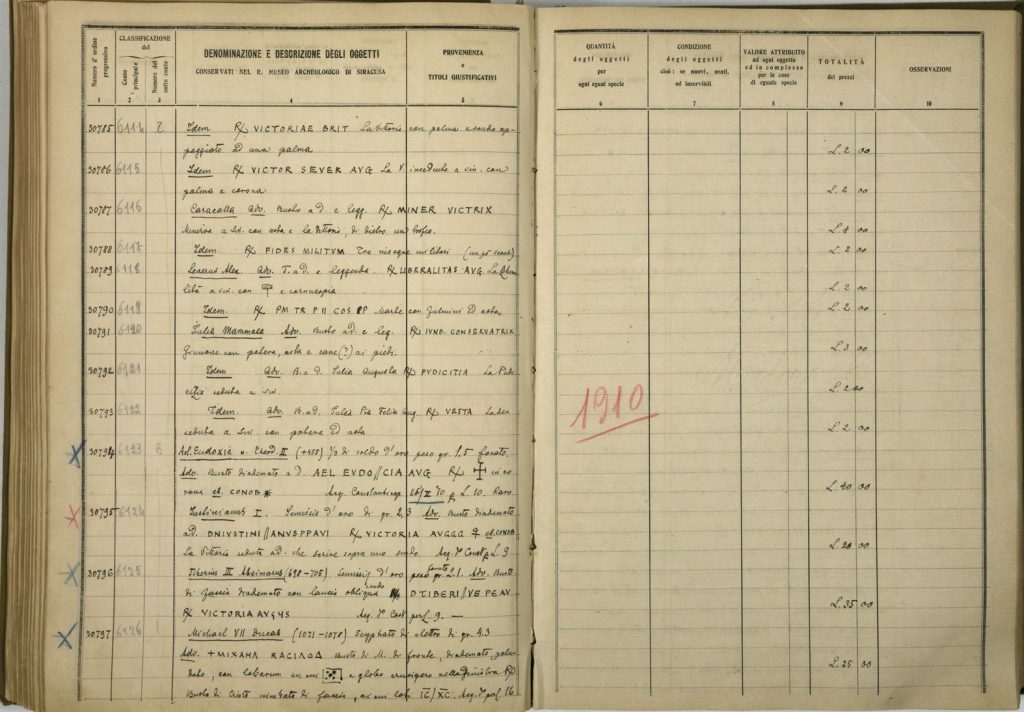 Numero d'ordine progressivo
CLASSIFICAZIONE del
Conto principale
Numero del sotto conto
DENOMINAZIONE E DESCRIZIONE DEGLI OGGETTI
CONSERVATI NEL R. MUSEO ARCHEOLOGICO DI SIRACUSA
PROVENIENZA
e
TITOLI GIUSTIFICATIVI
1 2 3 4 5
QUANTITÀ
degli oggetti
per
ogni egual specie
CONDIZIONE
degli oggetti
cioè: se nuovi, usati,
od inservibili
VALORE ATTRIBUITO
ad ogni oggetto
od in complesso
per le cose
di eguale specie
TOTALITÀ
dei prezzi
OSSERVAZIONI
6 7 8 9 10
30785 6114 Idem ℞ VICTORIAE BRIT La Vittoria con palma e scudo ap-
poggiato ad una palma L. 2 00
30786 6115 Idem ℞ VICTOR SEVER AVG La V. incedente a sin. con
palma e corona L. 2 00
30787 6116 Caracalla Adv. Busto a d. e legg. ℞ MINER VICTRIX
Minerva a sin. con asta e la Vittoria, di dietro un trofeo. L. 4 00
30788 6117 Idem. ℞ FIDES MILITVM Tre insegne militari L. 2 00
30789 6118 Severus Alex. Adv. T. a d. e leggenda. ℞ LIBERALITAS AVG La Libera-
lità a sin. con e cornucopia L. 2 00
30790 6119 Idem. ℞ PM TR P II COS PP Marte con ed asta L. 2 00
30791 6120 Julia Mammaea Adv. Busto a d. e leg. ℞ IVNO CONSERVATRIX
Giunone con patera, asta e cane (?) ai piedi. L. 3 00
30792 6121 Idem Adv. B. a d. Julia Augusta ℞ PVDICITIA La Pudi-
cizia seduta a sin. L. 2 00
30793 6122 Idem. Adv. B. a d. Julia Pia Felix Aug. ℞ VESTA La dea
seduta a sin. con patera ed asta L. 2 00
1910
30794 6123 B Ael. Eudoxia Theod. II 1/3 di soldo d'oro peso gr. 1,5 forato.
Adv. Busto diademato a d. AEL EVDO//CIA AVG ℞ in co-
rona CONOB* Acq. Constantinop. L. 10. Raro L. 40 00
30795 6124 Justinianus I. Semissis d'oro di gr. 2,3 Adv. Busto diademato
a d. DNIVSTINI//ANVSPPAVI ℞ VICTORIA AVGGG CONOB
La Vittoria seduta a d. che scrive sopra uno scudo. Acq. L. 9 L. 20 00
30796 6125 Tiberius III Absimarus (698-705). Semissis d'oro forato peso gr. 2.1. Adv. Busto
di faccia diademato con lancia obliqua scudo DTIBERI//VS PEAV
℞ VICTORIA AVGYS Acq. per L. 9. — L. 35 00
30797 6126 Michael VII Ducas (1071-1078) Scyphato di elettro di gr. 4.3
Adv. + MIXAHΛ RACIΛΟΔ Busto di M. di fronte, diademato, palu-
dato, con labarum e globo crucigero nella sinistra ℞
Busto di Cristo nimbato di faccia, ai cui lati IC/XC. Acq. per L. 16 L. 25 00